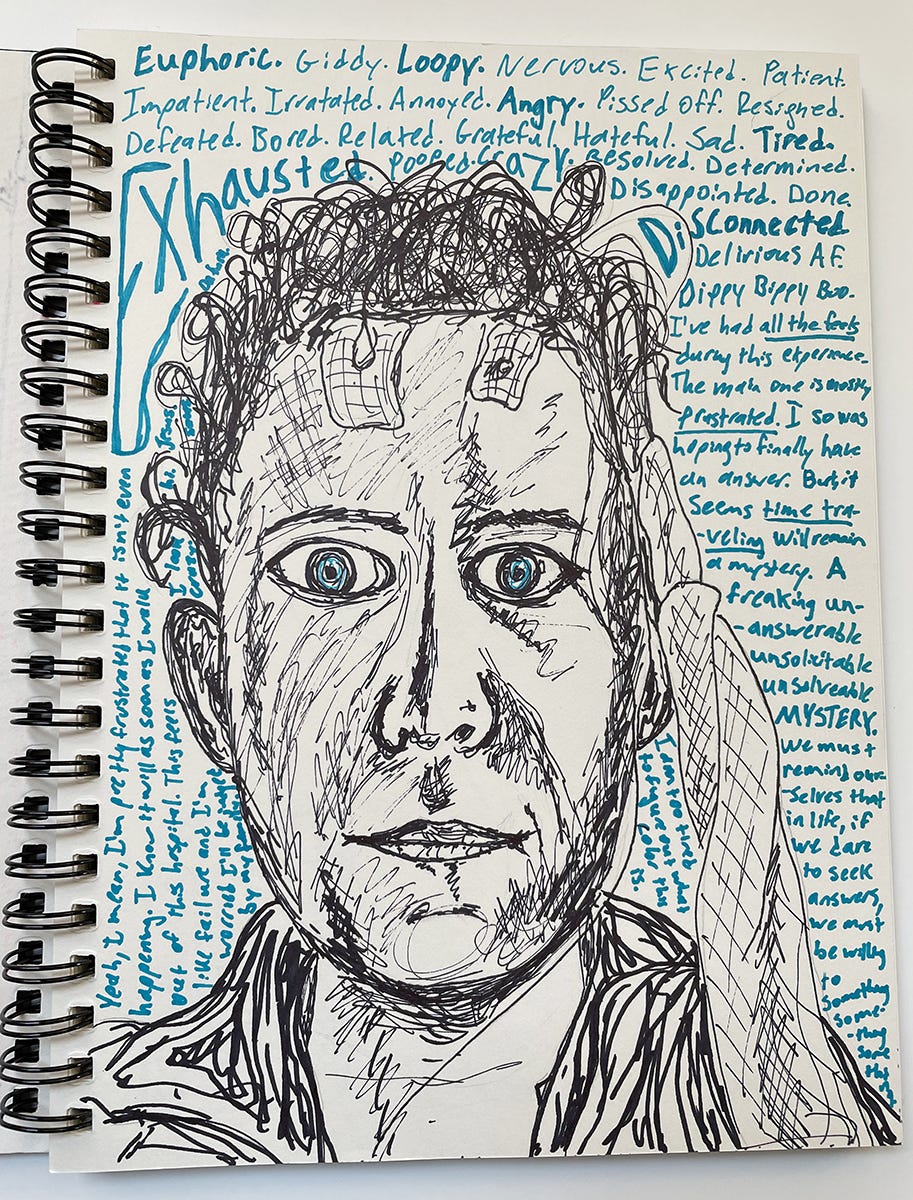 Euphoric. Giddy. Loopy. Nervous. Excited. Patient.
Impatient. Irratated. Annoyed. Angry. Pissed off. Resigned.
Defeated. Bored. Related. Grateful. Hateful. Sad. Tired.
Exhausted. Pooped. Crazy. Resolved. Determined.
Disappointed. Done.
Disconnected
Delirious AF.
Dippy Bippy Boo.
I've had all the feels
during this experience.
The main one is mostly
frustrated. I so was
hoping to finally have
an answer. But it
seems time tra-
-veling will remain
a mystery. A
freaking un-
-answerable
unsolvable
MYSTERY.
We must
remind our-
selves that
in life, if
we dare
to seek
answers,
we must
be willing
to
something
some-
-thing
some
Yeah, I mean, I'm pretty frustrated that it isn't even
happening. I know it will as soon as I walk
out of this hospital. This feels
like fail we and I'm
worried I'll be
by my
I look
crazy
to figure out this